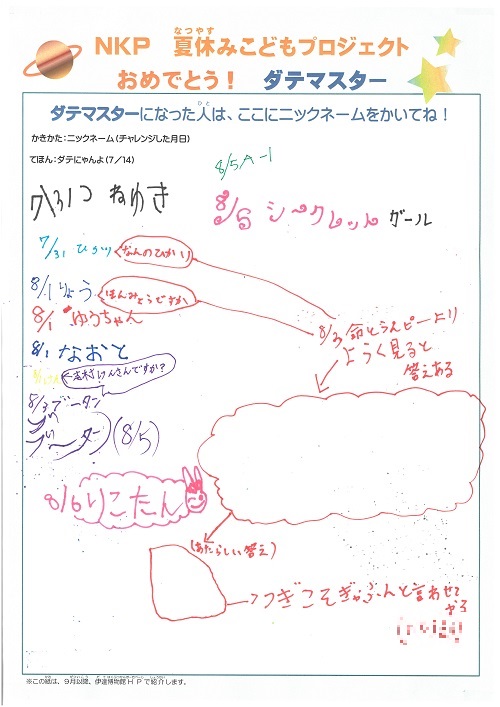 NKP 夏休みこどもプロジェクト
なつやす
おめでとう！ ダテマスター
ダテマスターになった人は、ここにニックネームをかいてね！
ひと
かきかた：ニックネーム（チャレンジした月日）
てほん：ダテにゃんよ（7／14）
8/5 A-1
7/31 つねゆき
8/5 シークレットガール
7/31 ひかり
なんのひかり
8/1 りょう
ほんみょうですか
8/1 ゆうちゃん
8/3 命とうんピーより
ようく見ると
答えある
8/1 なおと
←志村けんさんですか？
8/3 ブータン
ブータン (8/5)
8/6 りこたん
(あたらしい答え)
つぎこそぎゃふんと言わせて
やろ
※この紙は、9月以降、伊達博物館ＨＰで紹介します。